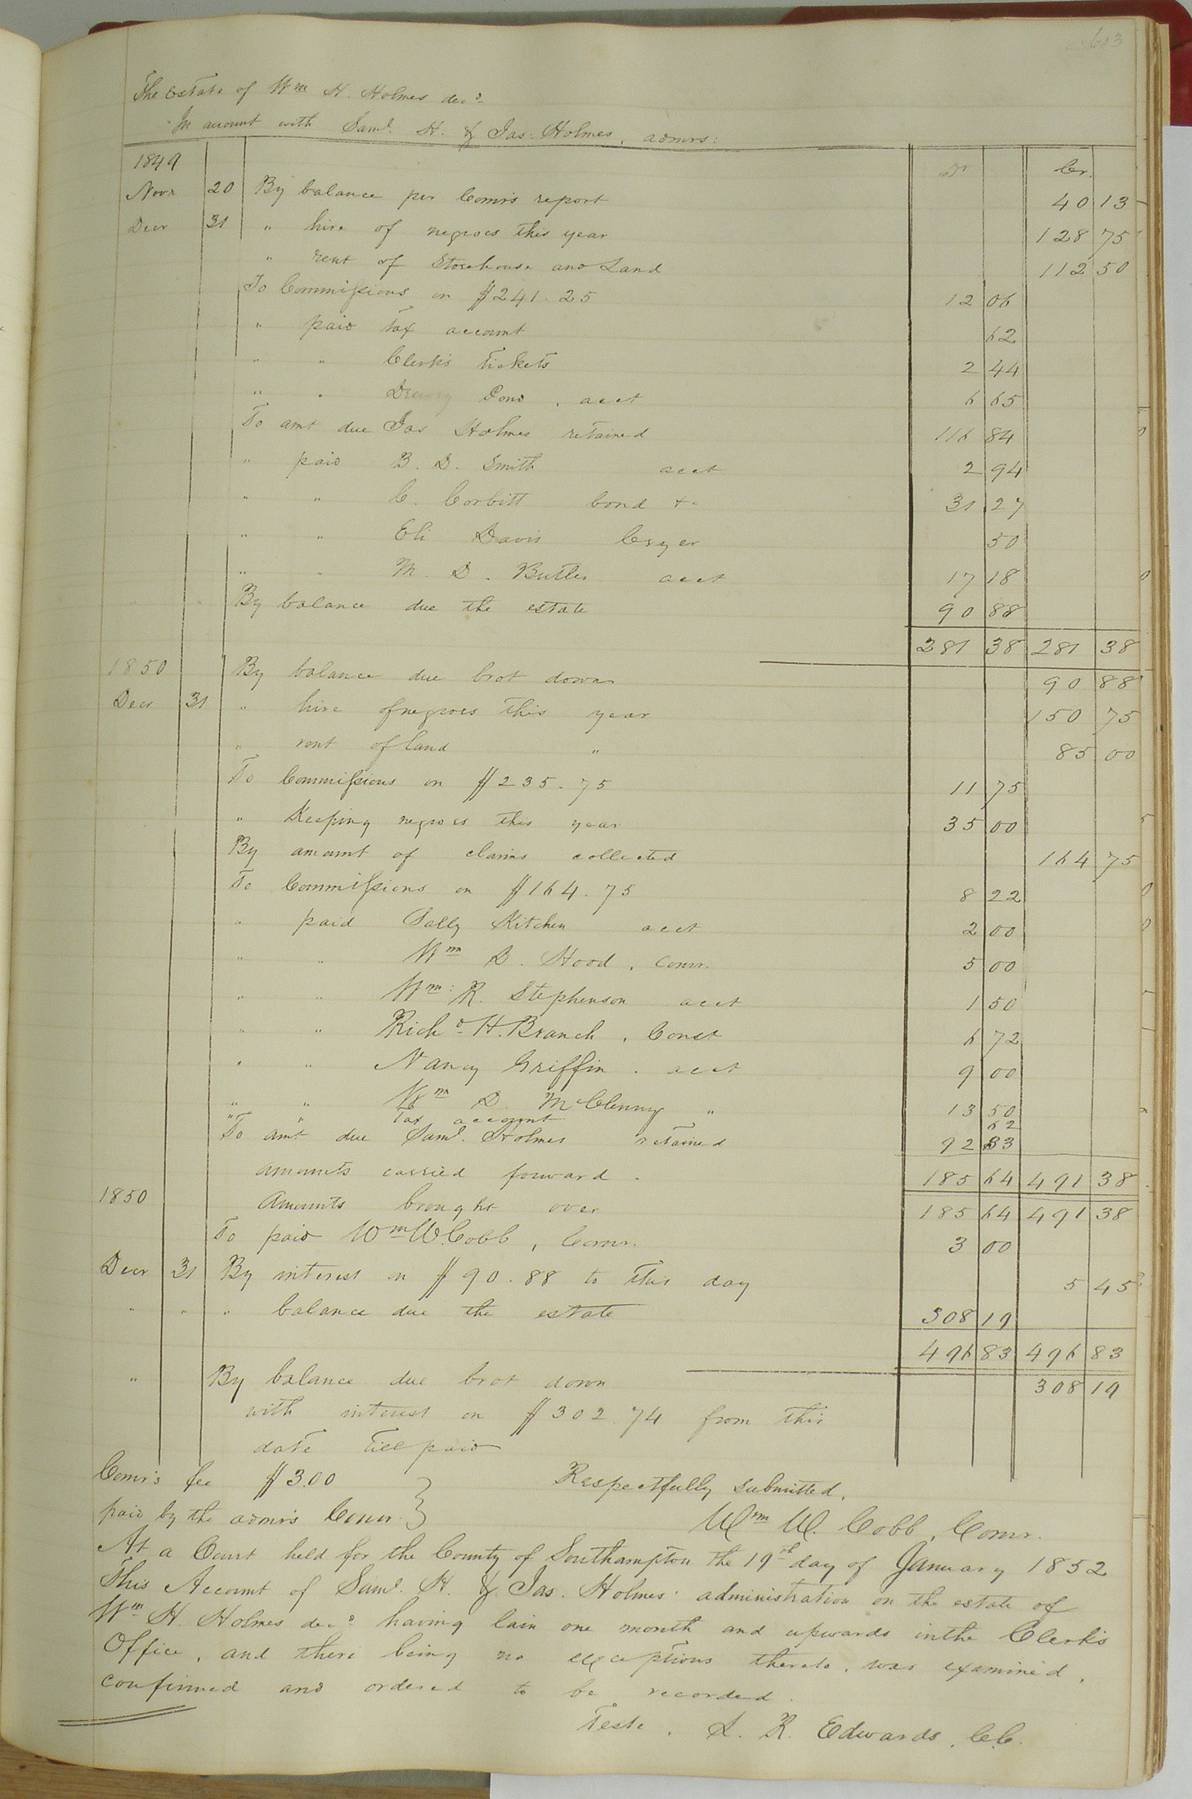 The Estate of Wm H. Holmes decd
In account with Saml. H. & Jas. Holmes, admrs:
1849 Dr Cr.
Novr 20 By balance per Comrs report 40 13
Decr 31 " hire of negroes this year 128 75
" rent of Storehouse and Land 112 50
To Commissions on $241.25 12 06
" paid Tax account 62
" " Clerk's Tickets 2 44
" " Drewry Pond, acct 6 65
To amt due Jas Holmes retained 116 84
" paid B. D. Smith acct 2 94
" " C. Corbitt bond &c 31 27
" " Eli Davis Cryer 50
" " M. D. Butler acct 17 18
By balance due the estate 90 88
281 38 281 38
1850 By balance due brot down 90 88
Decr 31 " hire of negroes this year 150 75
" rent of land " 85 00
To Commissions on $235.75 11 75
" Keeping negroes this year 35 00
By amount of claims collected 164 75
To Commissions on $164.75 8 22
" paid Sally Kitchen acct 2 00
" " Wm B. Hood, Comr. 5 00
" " Wm: R. Stephenson acct 1 50
" " Richd H. Branch, Const 6 72
" " Nancy Griffin. acct 9 00
" " Wm D. McClenny " 13 50
" " Tax account 62
To amt due Saml. Holmes retained 92 33
amounts carried forward. 185 64 491 38
1850 Amounts brought over 185 64 491 38
To paid Wm W. Cobb, Comr. 3 00
Decr 31 By interest on $90.88 to this day 5 45
" " " balance due the estate 308 19
496 83 496 83
" By balance due brot down 308 19
with interest on $302.74 from this
date till paid
Comr's fee $3.00 Respectfully submitted,
paid by the admr's Comr. Wm W. Cobb, Comr.
At a Court held for the County of Southampton the 19th day of January 1852
This Account of Saml. H. & Jas. Holmes' administration on the estate of
Wm H. Holmes decd having lain one month and upwards in the Clerk's
Office, and there being no exceptions thereto, was examined,
confirmed and ordered to be recorded.
Teste, L. R. Edwards, C.C.